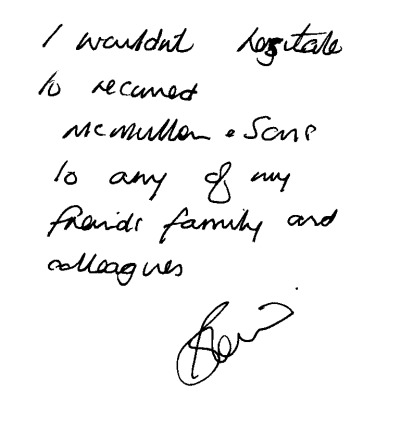 I wouldnt hesitate
to recomend
McMullen & Sons
to any of my
friends family and
colleagues